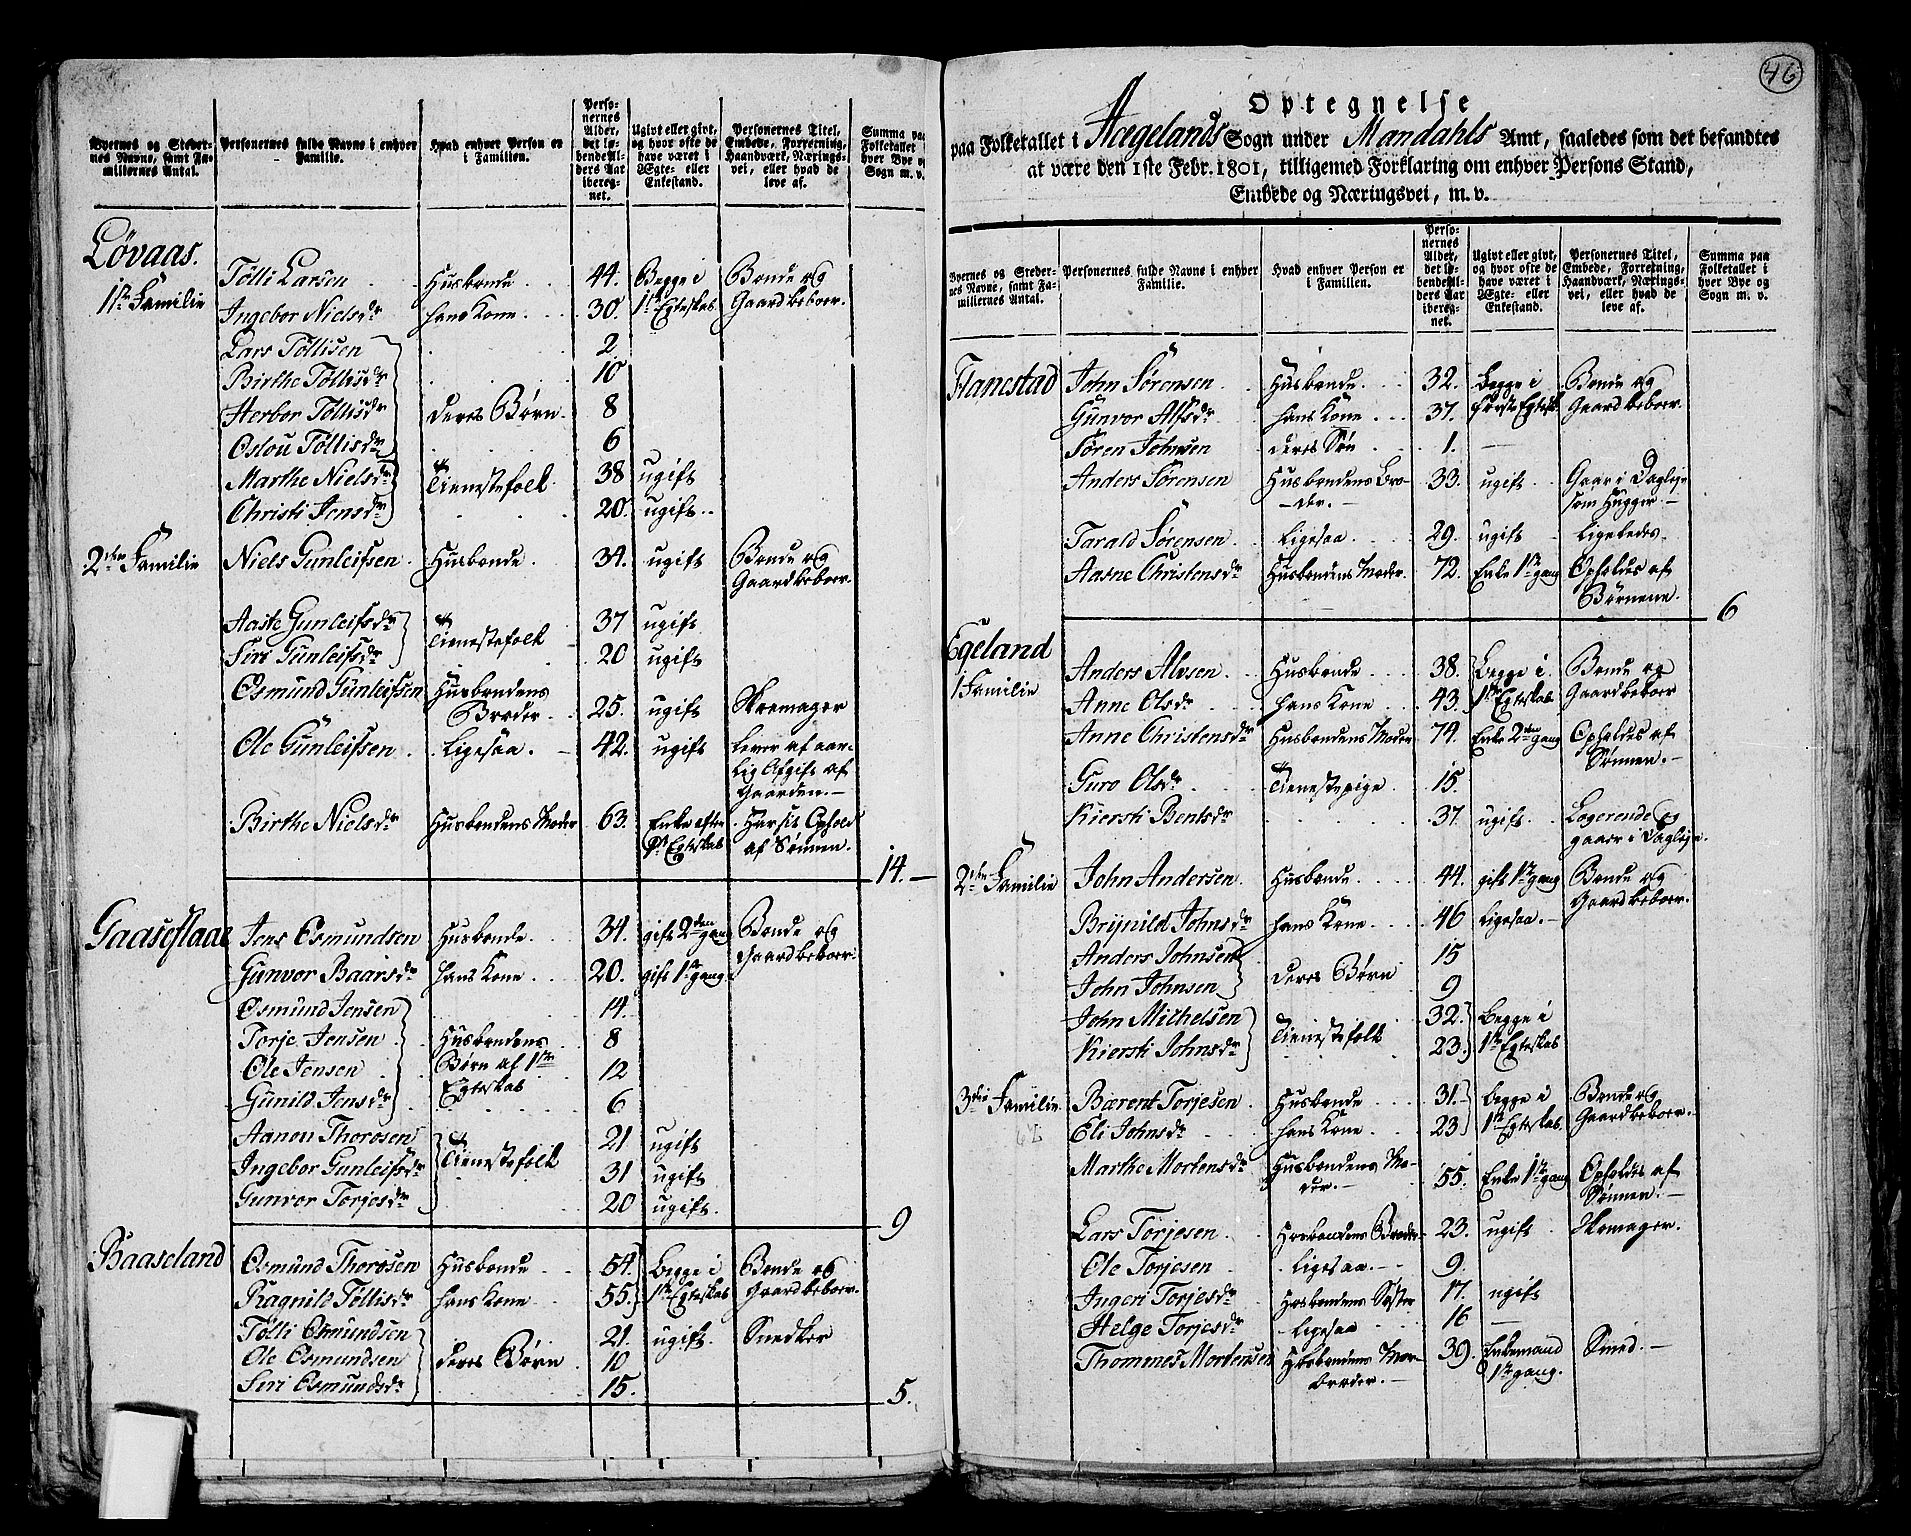 Byernes og Stedernes Navne, samt Familiernes Antal.
Personernes fulde Navne i enhver Familie.
Hvad enhver Person er i Familien.
Personernes Alder, det løbende Alders Aar iberegnet.
Ugivt eller givt, og hvor ofte de have været i Ægte- eller Enkestand.
Personernes Titel, Embede, Forretning, Haandværk, Næringsvei, eller hvad de leve af.
Summa paa Folketallet i hver Bye og Sogn m. v.
Løvaas.
1ste Familie Tølli Larsen Husbonde 44. Begge i Bonde og
Ingebor Nielsdr hans Kone 30. 1ste Egteskab Gaardbeboer.
Lars Tøllisen 2
Birthe Tøllisdr 10
Herbor Tøllisdr deres Børn 8
Oslou Tøllisdr 6
Marthe Nielsdr Tienestefolk 38 ugift
Christi Jensdr 20. ugift
2den Familie Niels Gunleifsen Husbonde 34. ugift Bonde og
Gaardbeboer.
Aaste Gunleifsdr Tienestefolk 37 ugift
Siri Gunleifsdr 20 ugift
Osmund Gunleifsen Husbondens
Broder 25. ugift Skomager
Ole Gunleifsen Ligesaa. 42. ugift Lever af aar-
lig Afgift af
Gaarden.
Birthe Nielsdr Husbondens Moder 63. Enke efter Har sit Ophold
1ste Egteskab af Sønnen.
14.
Gaaseflaae Jens Osmundsen Husbonde 34. gift 2den gang Bonde og
Gunvor Baarsdr hans Kone 20. gift 1ste gang Gaardbeboer
Osmund Jensen 14.
Torje Jensen Husbondens 8
Ole Jensen Børn af 1ste 12
Gunild Jensdr Egteskab 6
Aanon Thorosen 21 ugift
Ingebor Gunleifsdr Tienestefolk 31 ugift
Gunvor Torjesdr 20 ugift.
9
Baaseland Osmund Thorosen Husbonde 54. Begge i Bonde og
Ragnild Tøllisdr hans Kone 55. 1ste Egteskab Gaardbeboer.
Tølli Osmundsen 21. ugift. Snedker
Ole Osmundsen deres Børn 10
Siri Osmundsdr 15.
5.
46
Optegnelse
paa Folketallet i Aegelands Sogn under Mandahls Amt, saaledes som det befandtes
at være den 1ste Febr. 1801, tilligemed Forklaring om enhver Persons Stand,
Embede og Næringsvei, m. v.
Byernes og Stedernes Navne, samt Familiernes Antal.
Personernes fulde Navne i enhver Familie.
Hvad enhver Person er i Familien.
Personernes Alder, det løbende Alders Aar iberegnet.
Ugivt eller givt, og hvor ofte de have været i Ægte- eller Enkestand.
Personernes Titel, Embede, Forretning, Haandværk, Næringsvei, eller hvad de leve af.
Summa paa Folketallet i hver Bye og Sogn m. v.
Flanestad John Sørensen Husbonde 32. Begge i Bonde og
Gunvor Alfsdr hans Kone 37. første Egtesk. Gaardbeboer
Søren Johnsen deres Søn 1.
Anders Sørensen Husbondens Bro- 33. ugift Gaar i Dagleje
der. som Hugger
Tarald Sørensen Ligesaa 29. ugift Ligeledes.
Aasne Christensdr Husbondens Moder. 72. Enke 1ste gang Opholdes af
Børnene.
6
Egeland
1 Familie Anders Alvsen Husbonde 38. Begge i Bonde og
Anne Olsdr hans Kone 43. 1ste Egteskab Gaardbeboer
Anne Christensdr Husbondens Moder 74. Enke 2den gang Opholdes af
Sønnen.
Guro Olsdr Tienestepige 15.
Kiersti Bentsdr 37. ugift Logerende og
gaaer i Dagleje.
2den Familie John Andersen Husbonde 44. gift 1ste gang Bonde og
Gaardbeboer.
Brynild Johnsdr hans Kone 46 Ligesaa.
Anders Johnsen 15
John Johnsen deres Børn 9
John Michelsen Tienestefolk 32. Begge i
Kiersti Johnsdr 23. 1ste Egteskab
3die Familie Bærent Torjesen Husbonde 31. Begge i Bonde og
Eli Johnsdr hans Kone 23 1ste Egteskab. Gaardbeboer.
Marthe Mortensdr Husbondens Mo-
der. 55. Enke 1ste gang Opholdes af
Sønnen.
Lars Torjesen Husbondens Broder 23. ugift Skomager.
Ole Torjesen Ligesaa 9.
Ingeri Torjesdr Husbondens Søster 17. ugift
Helge Torjesdr Ligesaa 16
Thommes Mortensen Husbondens Mor- 39. Enkemand Smed.
broder. 1ste gang.